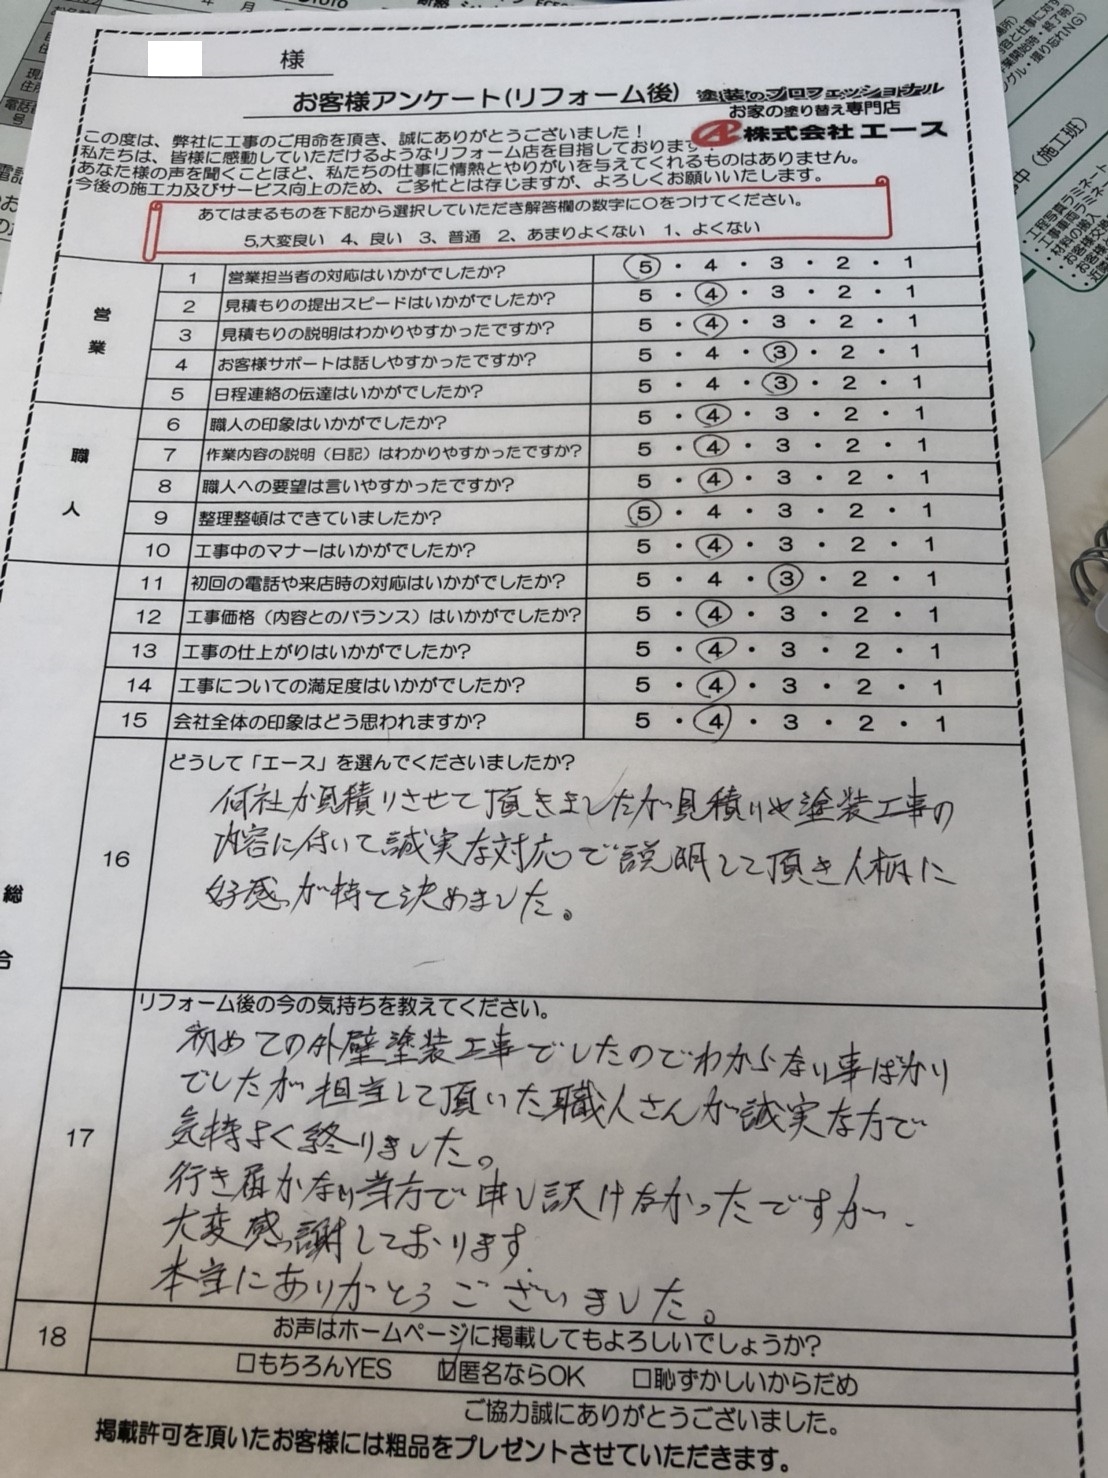 様
お客様アンケート(リフォーム後)
塗装のプロフェッショナル
お家の塗り替え専門店
株式会社 エース
この度は、弊社に工事のご用命を頂き、誠にありがとうございました！
私たちは、皆様に感動していただけるようなリフォーム店を目指しております！
あなた様の声を聞くことほど、私たちの仕事に情熱とやりがいを与えてくれるものはありません。
今後の施工力及びサービス向上のため、ご多忙とは存じますが、よろしくお願いいたします。
あてはまるものを下記から選択していただき解答欄の数字に○をつけてください。
5,大変良い 4、良い 3、普通 2、あまりよくない 1、よくない
営業
1 営業担当者の対応はいかがでしたか? 5・4・3・2・1
2 見積もりの提出スピードはいかがでしたか? 5・4・3・2・1
3 見積もりの説明はわかりやすかったですか? 5・4・3・2・1
4 お客様サポートは話しやすかったですか? 5・4・3・2・1
5 日程連絡の伝達はいかがでしたか? 5・4・3・2・1
職人
6 職人の印象はいかがでしたか? 5・4・3・2・1
7 作業内容の説明（日記）はわかりやすかったですか? 5・4・3・2・1
8 職人への要望は言いやすかったですか? 5・4・3・2・1
9 整理整頓はできていましたか? 5・4・3・2・1
10 工事中のマナーはいかがでしたか? 5・4・3・2・1
総合
11 初回の電話や来店時の対応はいかがでしたか? 5・4・3・2・1
12 工事価格（内容とのバランス）はいかがでしたか? 5・4・3・2・1
13 工事の仕上がりはいかがでしたか? 5・4・3・2・1
14 工事についての満足度はいかがでしたか? 5・4・3・2・1
15 会社全体の印象はどう思われますか? 5・4・3・2・1
16 どうして「エース」を選んでくださいましたか?
何社か見積りさせて頂きましたが見積りや塗装工事の
内容に付いて誠実な対応で説明して頂き人柄に
好感が持て決めました。
17 リフォーム後の今の気持ちを教えてください。
初めての外壁塗装工事でしたのでわからない事ばかり
でしたが担当して頂いた職人さんが誠実な方で
気持よく終りました。
行き届かない当方で申し訳けなかったですが、
大変感謝しております
本当にありがとうございました。
18 お声はホームページに掲載してもよろしいでしょうか?
□もちろんYES ☑匿名ならOK □恥ずかしいからだめ
ご協力誠にありがとうございました。
掲載許可を頂いたお客様には粗品をプレゼントさせていただきます。